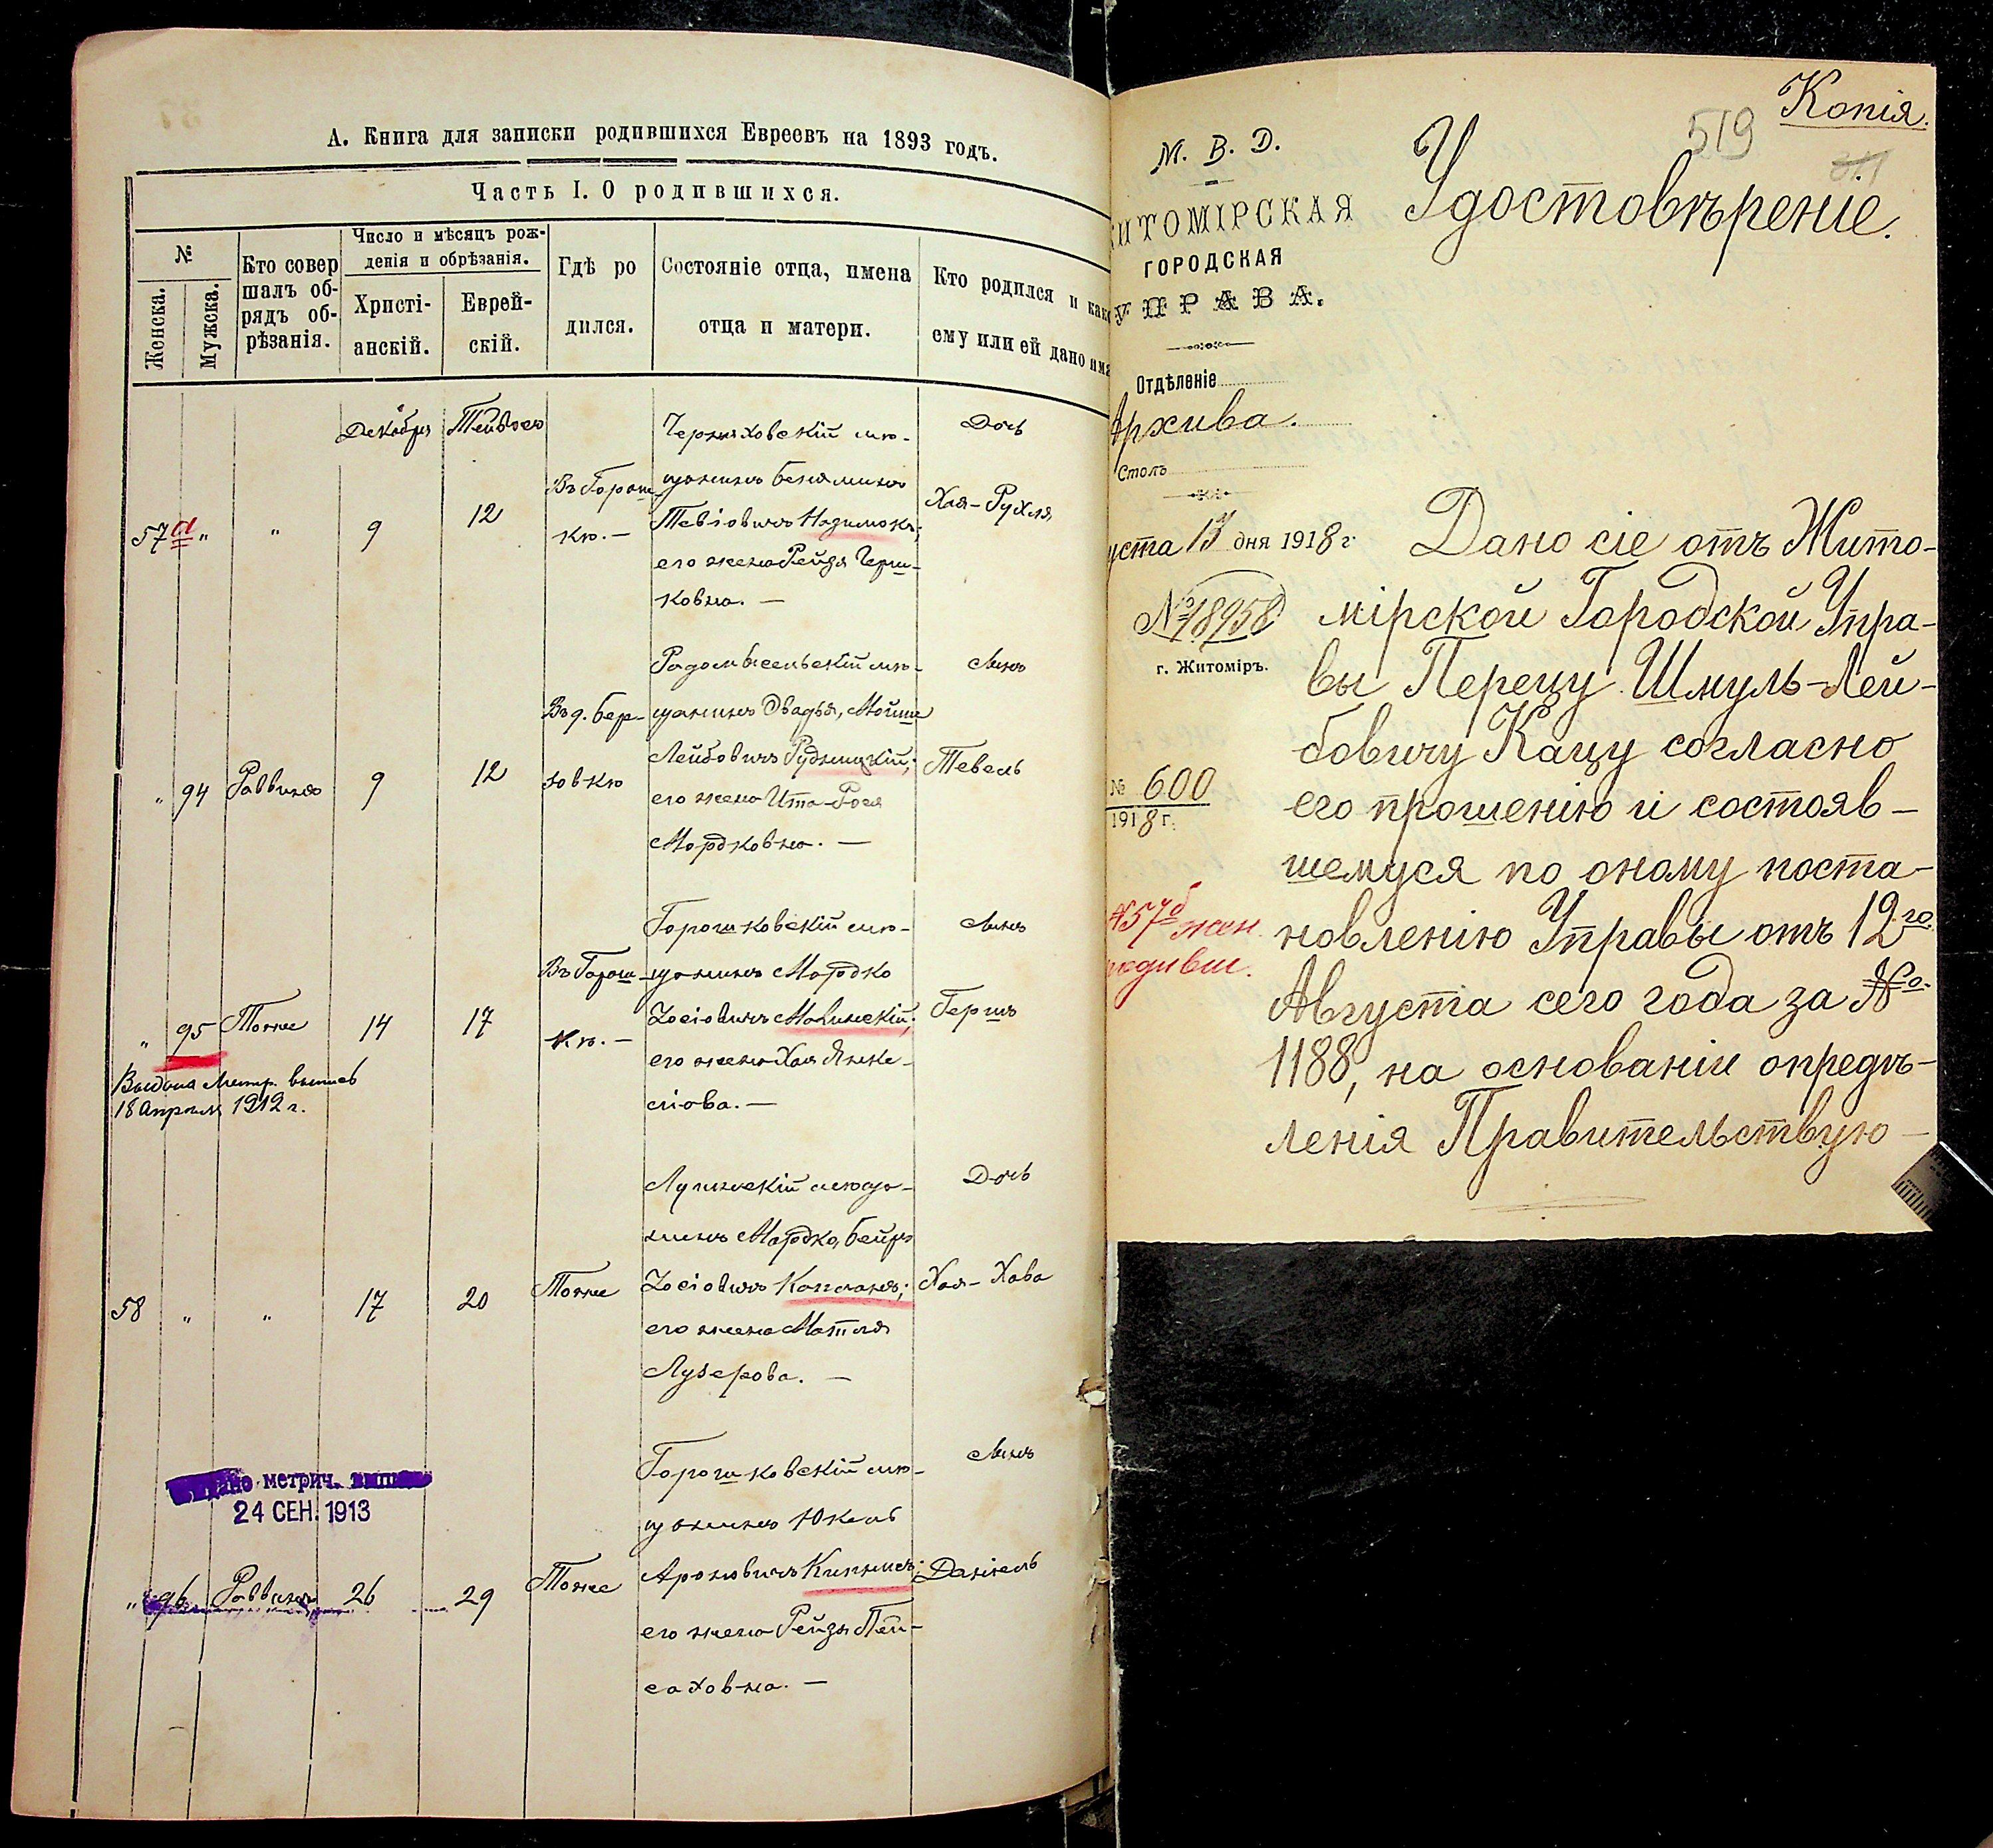 А. Книга для записки родившихся Евреевъ на 1893 годъ.
Часть I. О родившихся.
№
Женска.
Мужска.
Кто совер
шалъ об-
рядъ об-
рѣзанія.
Число и мѣсяцъ рож-
денія и обрѣзанія.
Христі-
анскій.
Еврей-
скій.
Гдѣ ро
дился.
Состояніе отца, имена
отца и матери.
Кто родился и како
ему или ей дано имя
Декабря
57а " " 9 12
Въ Горош-
кѣ. —
Черняховскій мѣ-
щанинъ Беніаминъ
Тевіовичъ
его жена Рейзя Герш-
ковна. —
Дочь
Хая-Рухля
" 94 Раввинъ 9 12
Въ д. Бер-
зовкѣ
Радомысельскій мѣ-
щанинъ Овадья, Мойше
Лейбовичъ Рудницкій;
его жена Ита-Рося
Мордковна. —
Сынъ
Тевель
" 95 Тотже 14 17
Выдана Метр. выпись
18 апрѣля 1912 г.
Въ Горош-
кѣ. —
Горошковскій мѣ-
щанинъ Мордко
Іосіовичъ Малинскій;
его жена Хая Янке-
ліова. —
Сынъ
Гершъ
58 " " 17 20
Тамже
Лугинскій мѣща-
нинъ Мордко, Бейръ
Іосіовичъ Капланъ;
его жена Матля
Лузерова. —
Дочь
Хая-Хава
метрич.
24 СЕН. 1913
" 96 Раввинъ 26 29
Тамже
Горошковскій мѣ-
щанинъ Юкель
Ароновичъ Кипнисъ;
его жена Рейзя Пей-
саховна. —
Сынъ
Даніель
Копія.
519
М. В. Д.
ИТОМІРСКАЯ
ГОРОДСКАЯ
УПРАВА.
Отдѣленіе
Архива.
Столъ
уста 13 дня 1918 г.
№ 18958
г. Житоміръ.
№ 600
1918 г.
№57б жен.
родивш.
Удостовѣреніе.
Дано сіе отъ Жито-
мірской Городской Упра-
вы Перецу Шмуль-Лей-
бовичу Кацу согласно
его прошенію и состояв-
шемуся по оному поста-
новленію Управы отъ 12го
Августа сего года за №
1188, на основаніи опредѣ-
ленія Правительствую-